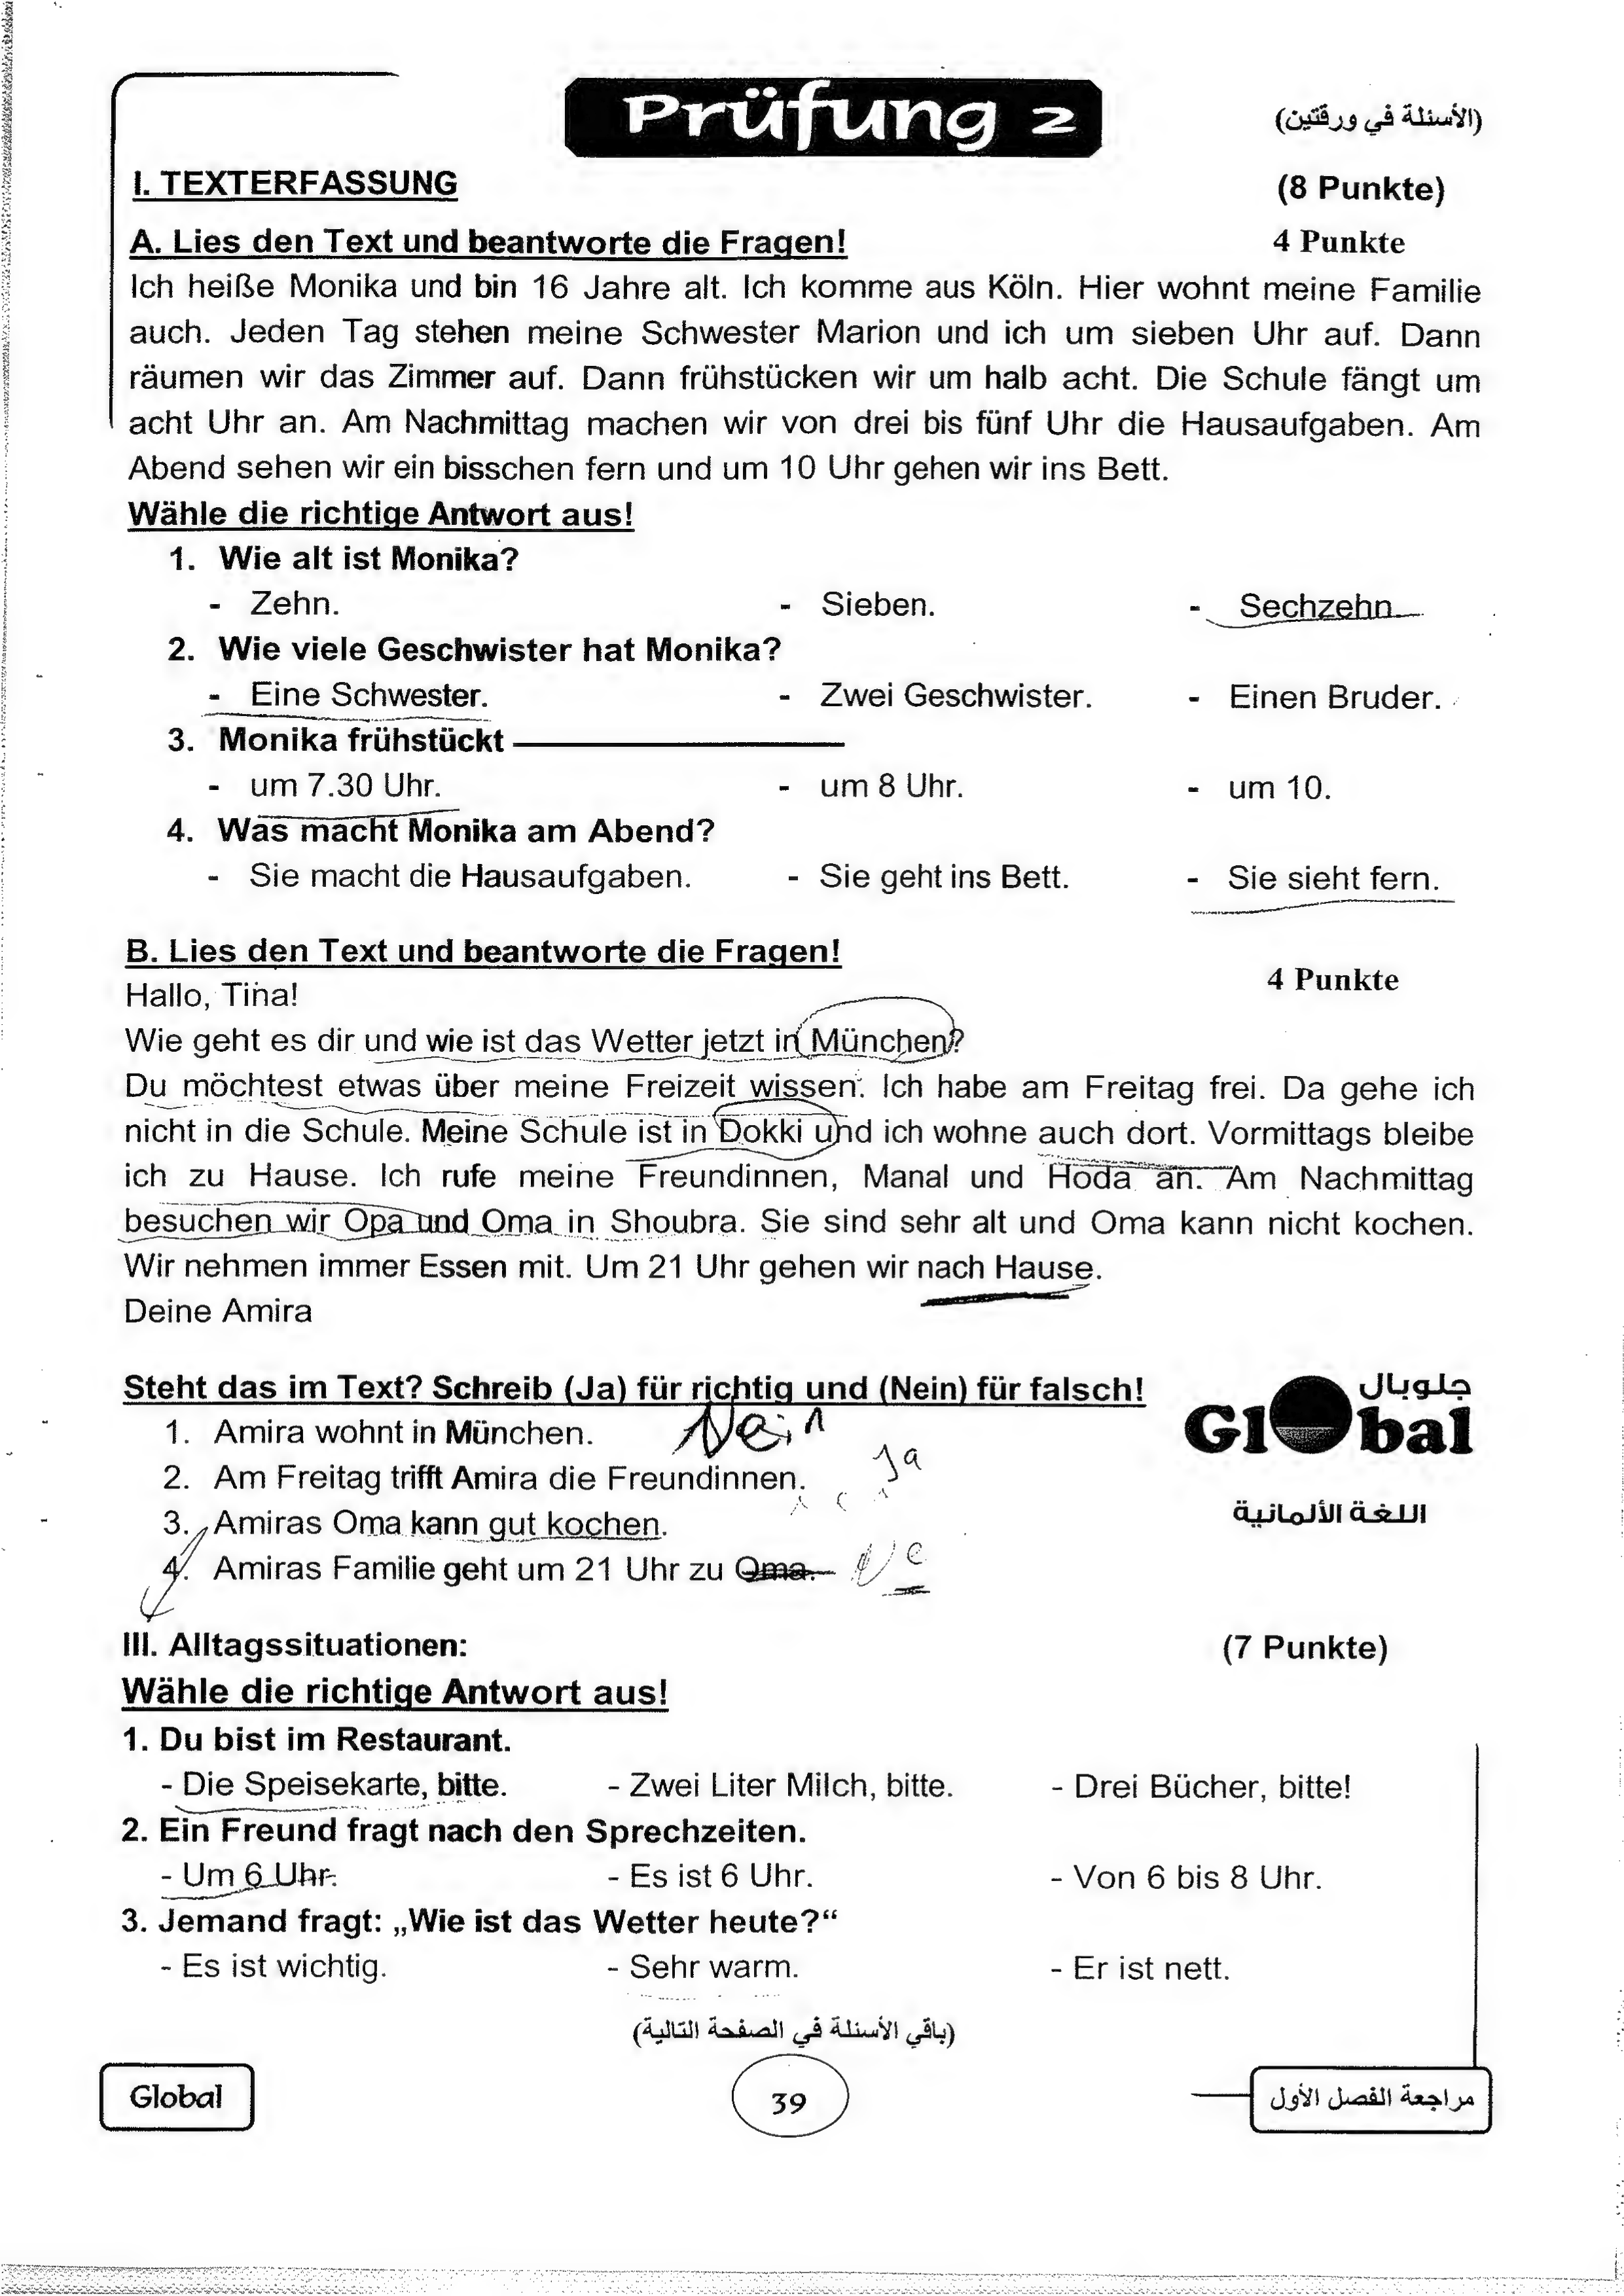 Prüfung 2
(الأسئلة في ورقتين)
I. TEXTERFASSUNG (8 Punkte)
A. Lies den Text und beantworte die Fragen! 4 Punkte
Ich heiße Monika und bin 16 Jahre alt. Ich komme aus Köln. Hier wohnt meine Familie
auch. Jeden Tag stehen meine Schwester Marion und ich um sieben Uhr auf. Dann
räumen wir das Zimmer auf. Dann frühstücken wir um halb acht. Die Schule fängt um
acht Uhr an. Am Nachmittag machen wir von drei bis fünf Uhr die Hausaufgaben. Am
Abend sehen wir ein bisschen fern und um 10 Uhr gehen wir ins Bett.
Wähle die richtige Antwort aus!
1. Wie alt ist Monika?
- Zehn. - Sieben. - Sechzehn
2. Wie viele Geschwister hat Monika?
- Eine Schwester. - Zwei Geschwister. - Einen Bruder.
3. Monika frühstückt
- um 7.30 Uhr. - um 8 Uhr. - um 10.
4. Was macht Monika am Abend?
- Sie macht die Hausaufgaben. - Sie geht ins Bett. - Sie sieht fern.
B. Lies den Text und beantworte die Fragen!
4 Punkte
Hallo, Tina!
Wie geht es dir und wie ist das Wetter jetzt in München?
Du möchtest etwas über meine Freizeit wissen. Ich habe am Freitag frei. Da gehe ich
nicht in die Schule. Meine Schule ist in Dokki und ich wohne auch dort. Vormittags bleibe
ich zu Hause. Ich rufe meine Freundinnen, Manal und Hoda an. Am Nachmittag
besuchen wir Opa und Oma in Shoubra. Sie sind sehr alt und Oma kann nicht kochen.
Wir nehmen immer Essen mit. Um 21 Uhr gehen wir nach Hause.
Deine Amira
Steht das im Text? Schreib (Ja) für richtig und (Nein) für falsch!
1. Amira wohnt in München. Nein
2. Am Freitag trifft Amira die Freundinnen. Ja
3. Amiras Oma kann gut kochen.
4. Amiras Familie geht um 21 Uhr zu Oma. Ne
جلوبال
Global
اللغة الألمانية
III. Alltagssituationen: (7 Punkte)
Wähle die richtige Antwort aus!
1. Du bist im Restaurant.
- Die Speisekarte, bitte. - Zwei Liter Milch, bitte. - Drei Bücher, bitte!
2. Ein Freund fragt nach den Sprechzeiten.
- Um 6 Uhr. - Es ist 6 Uhr. - Von 6 bis 8 Uhr.
3. Jemand fragt: „Wie ist das Wetter heute?“
- Es ist wichtig. - Sehr warm. - Er ist nett.
(باقي الأسئلة في الصفحة التالية)
Global
39
مراجعة الفصل الأول